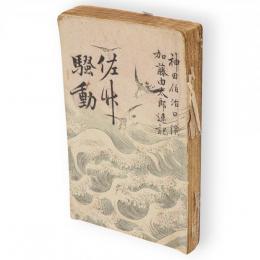 神田伯治口演
加藤由太郎速記
佐竹
騒動